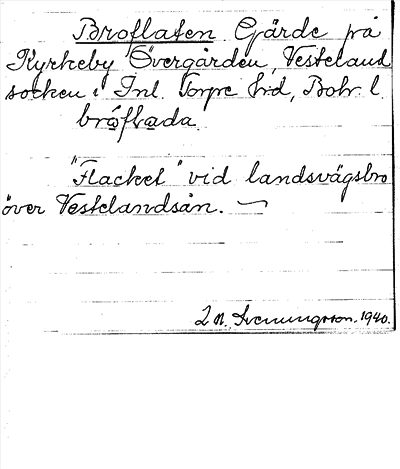 Broflaten Gärde på
Kyrkeby Övergården, Vesteland
socken i Inl. Torpe h:d, Boh. l.
bråflada
"Flacket" vid landsvägsbro
över Vestelandsån.
Svenungsson. 1940.